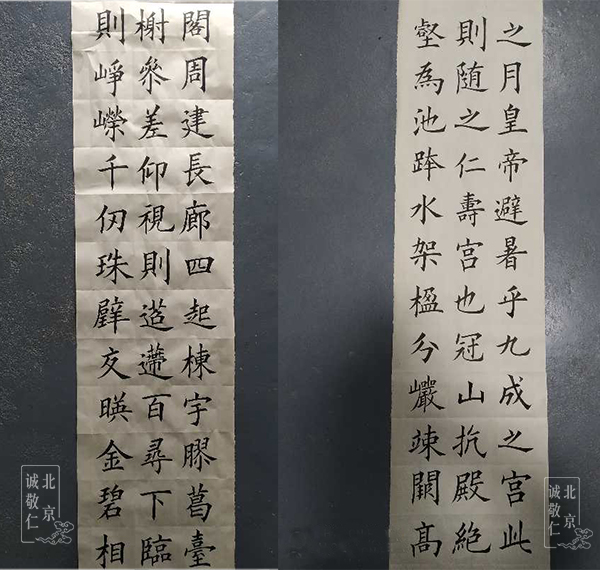 之月皇帝避暑乎九成之宫此
則随之仁壽宫也冠山抗殿絶
壑為池跨水架楹分巖竦闕髙
閣周建長廊四起棟宇膠葛臺
榭参差仰視則迢遰百尋下臨
則崢嶸千仞珠璧交暎金碧相
北京
诚敬仁
北京
诚敬仁